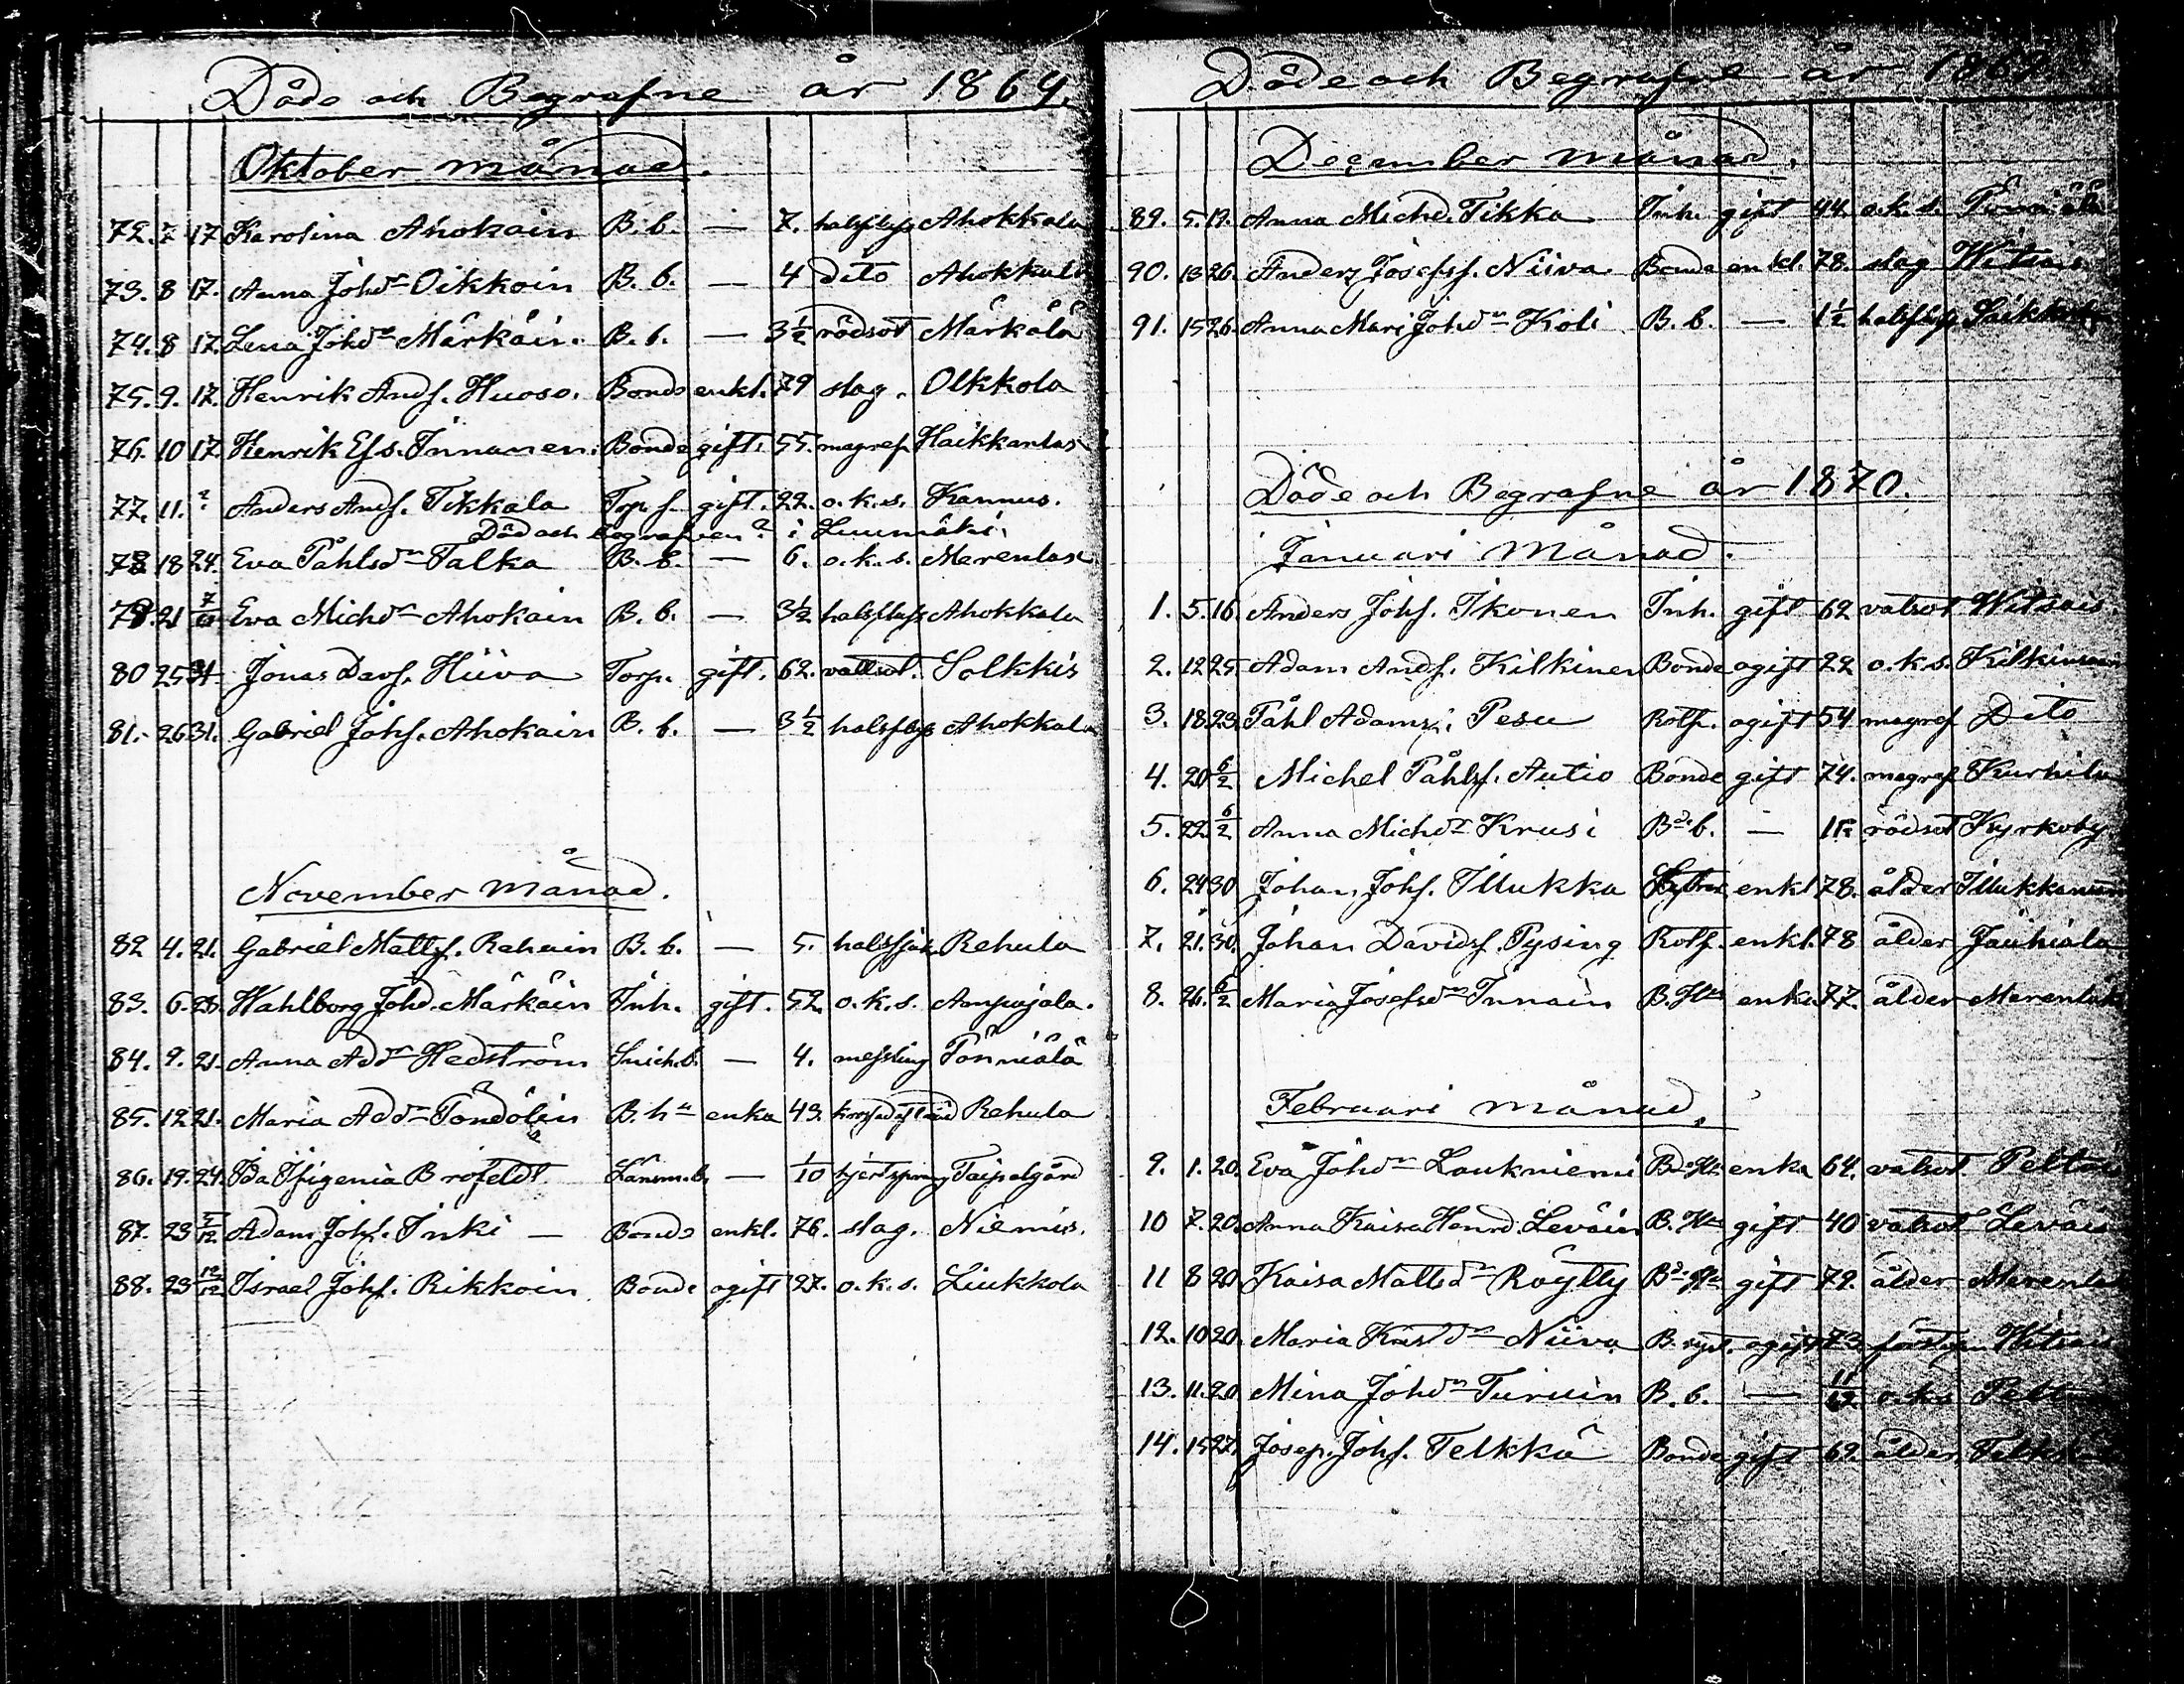 Döde och Begrafne år 1869.
Oktober månad.
72. 7 17 Karolina Ahokain B. b. — 7. halsflus Ahokkala
73. 8 17. Anna Johdr Oikkoin B. b. — 4 dito Ahokkala
74. 8 17. Lena Johdr Märkäin. B. b. — 3½ rödsot Märkälä
75. 9. 17. Henrik Andf. Huoso. Bonde enkl. 79 slag. Olkkola
76. 10 17. Henrik Efs. Innanen. Bonde gift. 55. magref Haikkanlax
77. 11. ? Anders Andf. Tikkala Torp. f. gift. 22. o.k.s. Kannus.
Död och begrafven? i Luumäki
78 18 24. Eva Påhlsdr Talka B. b. — 6. o.k.s. Merenlax
79. 21 7/10 Eva Michdr Ahokain B. b. — 3½ halsfluss Ahokkala
80 25 31 Jonas Davf. Hiiva Torp. gift. 62. vattsot. Solkkis
81. 26 31. Gabriel Johf. Ahokain B. b. — 3½ halsflus Ahokkala
November månad.
82 4. 21. Gabriel Mattf. Rahain B. b. — 5. halssjuk Rehula
83. 6. 28. Wahlborg Johd. Märkäin Inh. gift. 52. o.k.s. Ampujala.
84. 9. 21. Anna Addr Hedström Snick.b. — 4. messling Pönniälä
85. 12 21. Maria Addr Töndölin B. hu enka 43. Rehula
86. 19. 24. Ida Ifigenia Brofeldt Länsm.b. — 1/10 hjertspring Taipalgård
87. 23 5/12 Adam Johf. Inki — Bonde enkl. 76. slag. Niemis.
88. 23 12/12 Israel Johf. Rikkoin Bonde ogift 27. o.k.s. Liukkola
Döde och Begrafne år 1869.
December månad.
89. 5. 19. Anna Michd. Tikka Inh. gift 44. o.k.s. Pönniälä
90. 13 26. Anders Josefsf. Niiva Bonde enkl. 78. slag Witsais
91. 15 26. Anna Mari Johdr Koli B. b. — 1½ halsfluss
Döde och Begrafne år 1870.
Januari Månad.
1. 5. 16. Anders Johf. Ikonen Inh. gift 62 vatsot Witsais.
2. 12 25. Adam Andf. Kilkinen Bonde ogift 22 o.k.s. Kilkinsaari
3. 18 23. Påhl Adamsf. Pesu Rotf. ogift 54 magref Dito
4. 20 6/2 Michel Påhlsf. Autio Bonde gift 74. magref Kurhila
5. 22. 6/2 Anna Michdr Krusi Bd. b. — rödsot Kyrkoby
6. 24 30 Johan Johf. Illukka enkl 78. ålder
7. 21. 30. Johan Davidsf. Pysing Rotf. enkl. 78 ålder Jauhiala
8. 26. 6/2 Maria Josefsdr Innain B. Hu enka 77. ålder Merenlax
Februari månad.
9. 1. 20. Eva Johdr Laukniemi Bd. Hu enka 64. vatsot Peltois
10 7. 20. Anna Kaisa Henrd. Leväin B. Hu gift 40 vatsot Leväis
11 8 20 Kaisa Mattsdr Röytty Bd. Hu gift 79. ålder Merenlax
12. 10 20. Maria Kristdr Niiva B. syst. ogift 73 Witsais
13. 11. 20. Mina Johdr Turuin B. b. — 11/12 o.k.s.
14. 15 27. Josep. Johf. Telkkä Bonde gift 69. ålder